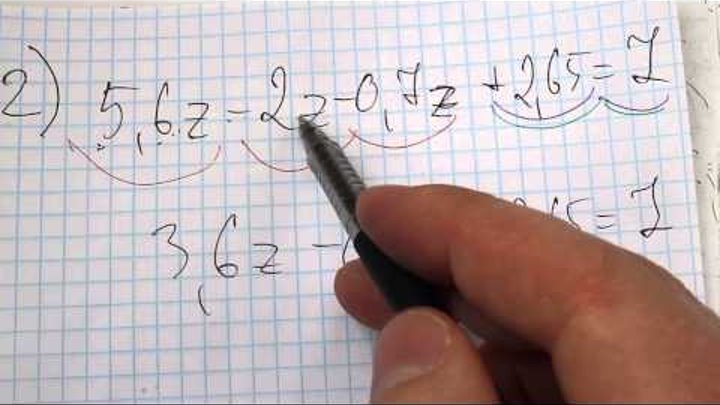 2) 5,6z - 2z - 0,7z + 2,65 = 7
3,6z - 2,65 = 7